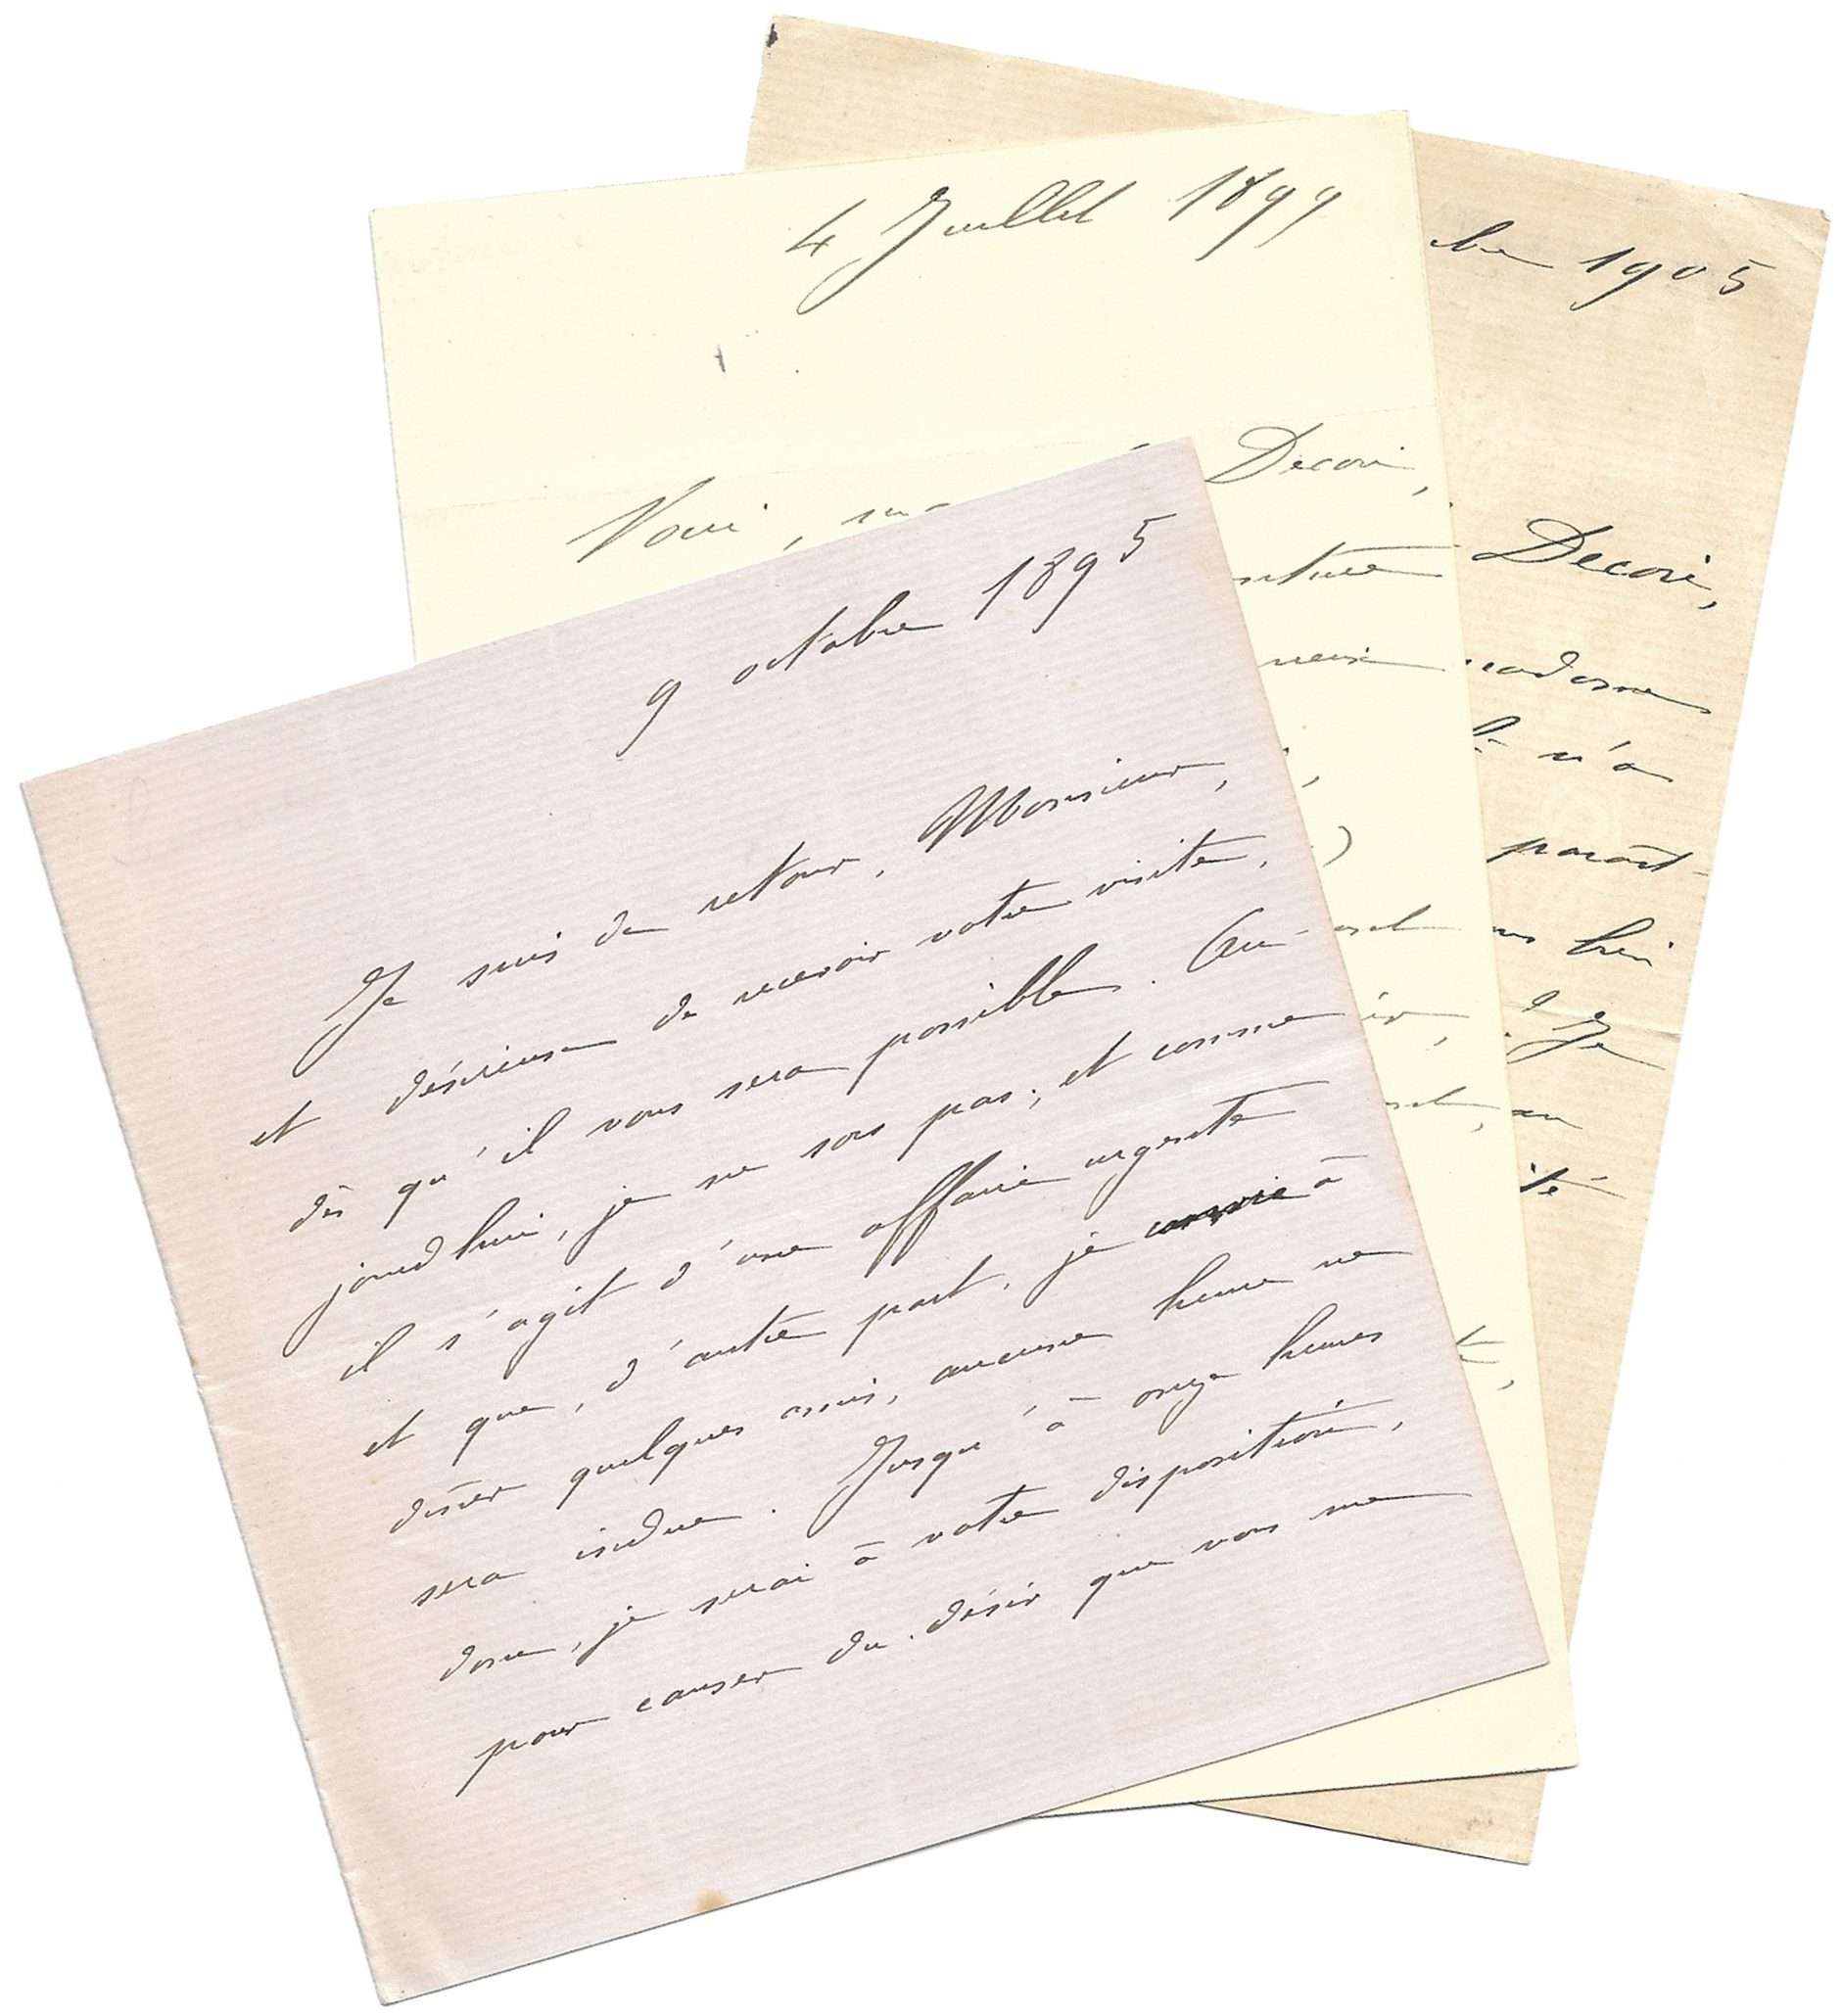 9 octobre 1895
Je suis de retour, Monsieur,
et désireuse de recevoir votre visite,
dès qu'il vous sera possible. Au-
jourd'hui, je ne sors pas; et comme
il s'agit d'une affaire urgente
et que, d'autre part, je à
dîner quelques amis, aucune heure ne
sera indue. Jusqu'à onze heures
donc, je serai à votre disposition,
pour causer du désir que vous me
4 Juillet 1899
Voici, Decori,
bre 1905
Decori,
madame
n'a
paraît
bien
Je